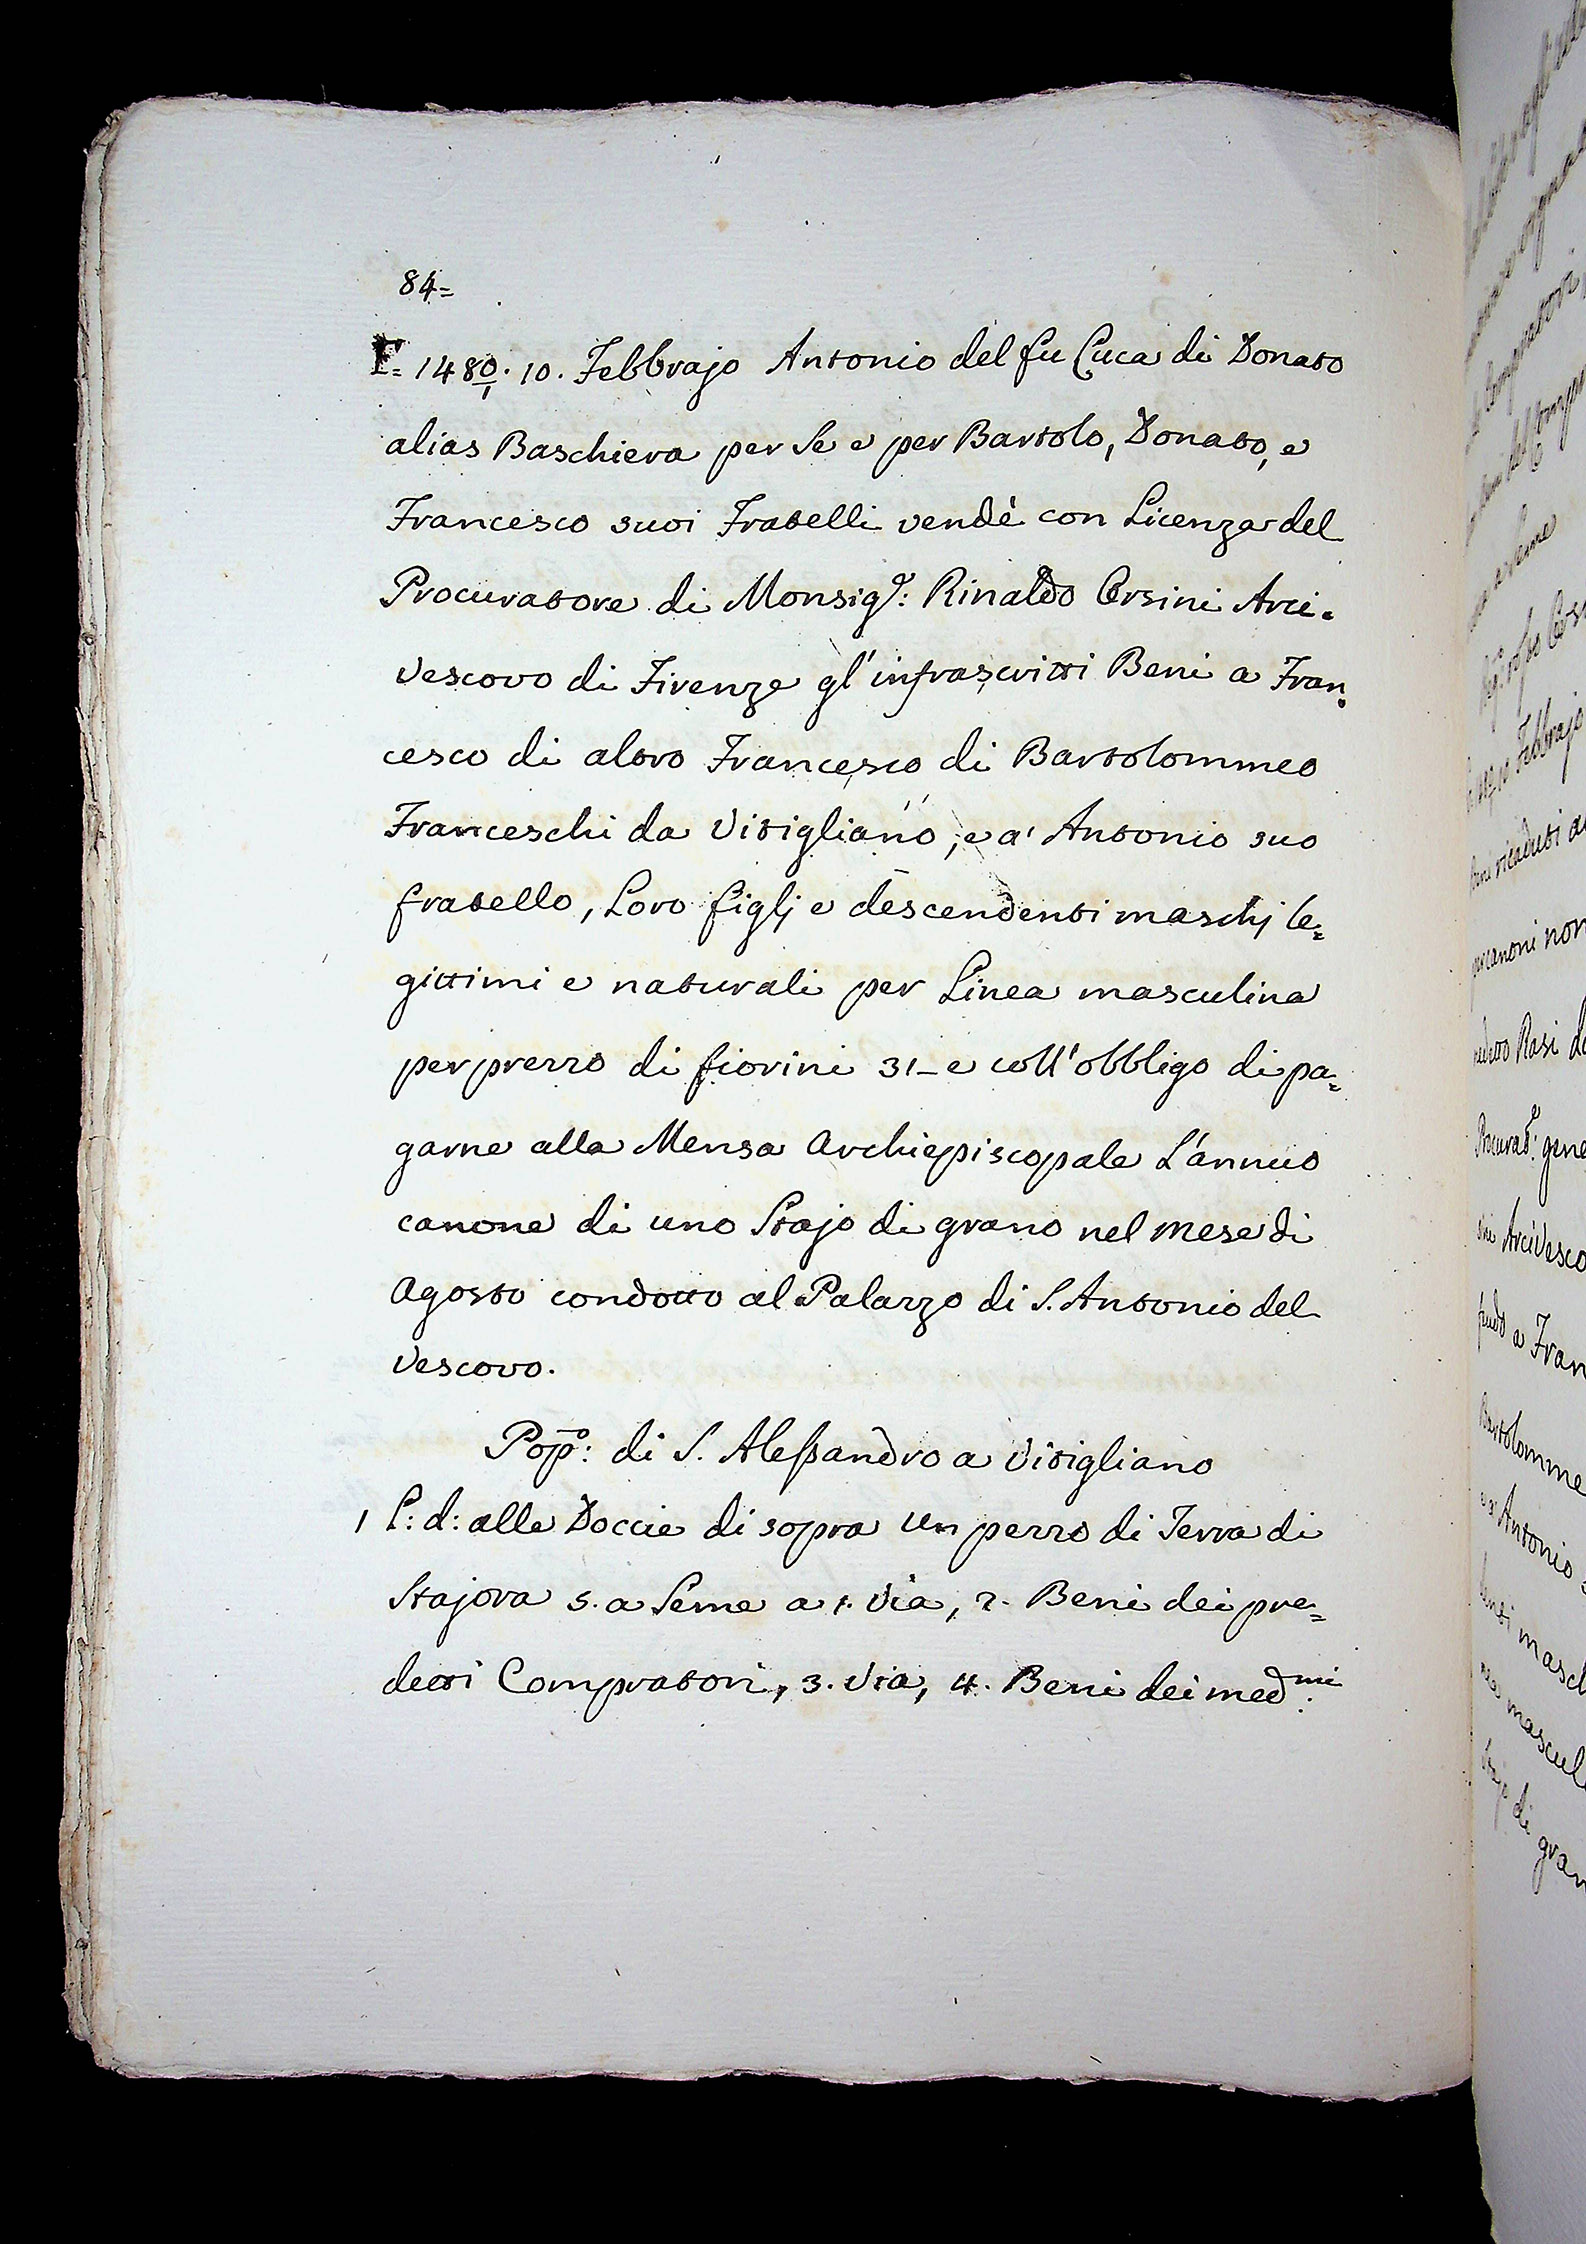 84=
E= 1480/1. 10. Febbrajo Antonio del fu Luca di Donato
alias Baschiera per Se e per Bartolo, Donato, e
Francesco suoi Fratelli vendè con Licenza del
Procuratore di Monsig.r: Rinaldo Orsini Arci=
Vescovo di Firenze gl'infrascritti Beni a Fran=
cesco di altro Francesco di Bartolommeo
Franceschi da Vitigliano, e a' Antonio suo
fratello, Loro figlj e descendenti maschj le=
gittimi e naturali per Linea masculina
per prezzo di fiorini 31_ e coll'obbligo di pa=
garne alla Mensa Archiepiscopale L'annuo
canone di uno Stajo di grano nel mese di
Agosto condotto al Palazzo di S. Antonio del
Vescovo.
Pop.o: di S. Alessandro a Vitigliano
1 L: d: alle Doccie di sopra un pezzo di Terra di
Stajora 5. a Seme a 1. Via, 2. Beni dei pre=
detti Compratori, 3. Via, 4. Beni dei med.mi